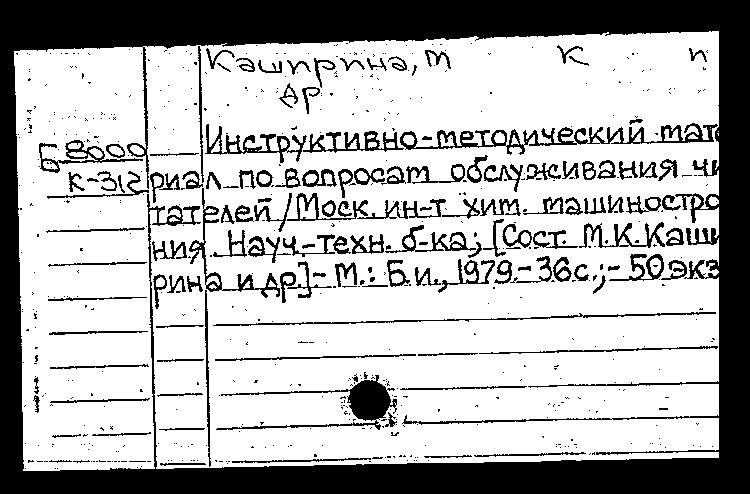 Каширина, М К п
др.
Б 8000 Инструктивно-методический мате
К-312 риал по вопросам обслуживания чи
тателей / Моск. ин-т хим. машиностро
ния. Науч.-техн. б-ка; [Сост. М.К. Каши
рина и др.]- М.: Б.и., 1979.- 36с.;- 50экз